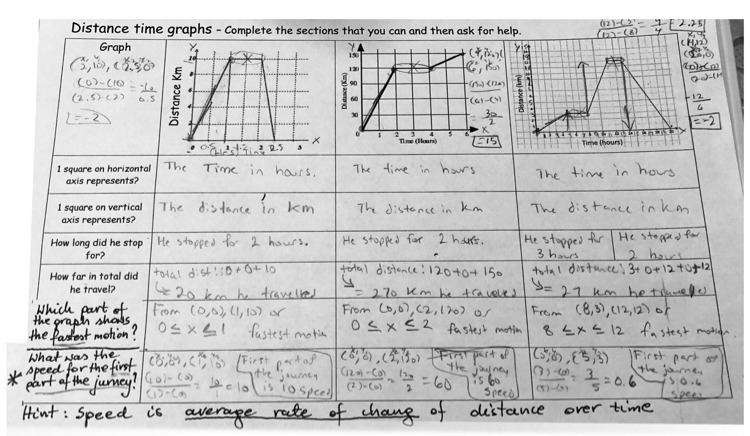 Distance time graphs - Complete the sections that you can and then ask for help.
Graph
(0)-(10)
(2.5)-(2)
0.5
=-2
Distance Km
0.5 1 2 2.5 3
X
Y
Distance (Km)
150
120
90
60
30
0 1 2 3 4 5 6
Time (Hours)
X
30
2
=15
Distance (km)
Time (hours)
= 2.25
-12
6
=-2
1 square on horizontal
axis represents?
The Time in hours.
The time in hours
The time in hours
1 square on vertical
axis represents?
The distance in km
The distance in km
The distance in km
How long did he stop
for?
He stopped for 2 hours.
He stopped for 2 hours.
He stopped for
3 hours
He stopped for
2 hours
How far in total did
he travel?
total dist:10+0+10
= 20 km he travelled
total distance: 120+0+150
= 270 km he traveled
total distance: 3+0+12+0+12
= 27 km he traveled
Which part of
the graph shows
the fastest motion?
From (0,0),(1,10) or
0 ≤ x ≤ 1 fastest motion
From (0,0),(2,120) or
0 ≤ x ≤ 2 fastest motion
From (8,3),(12,12) or
8 ≤ x ≤ 12 fastest motion
* What was the
speed for the first
part of the jurney?
(0,0),(1,10)
(10)-(0) = 10 = 10
(1)-(0) 1
First part of
the journey
is 10 speed
(0,0),(2,120)
(120)-(0) = 120 = 60
(2)-(0) 2
First part of
the journey
is 60
speed
(0,0),(5,3)
(3)-(0) = 3 = 0.6
(5)-(0) 5
First part of
the journey
is 0.6
speed
Hint : Speed is average rate of chang of distance over time